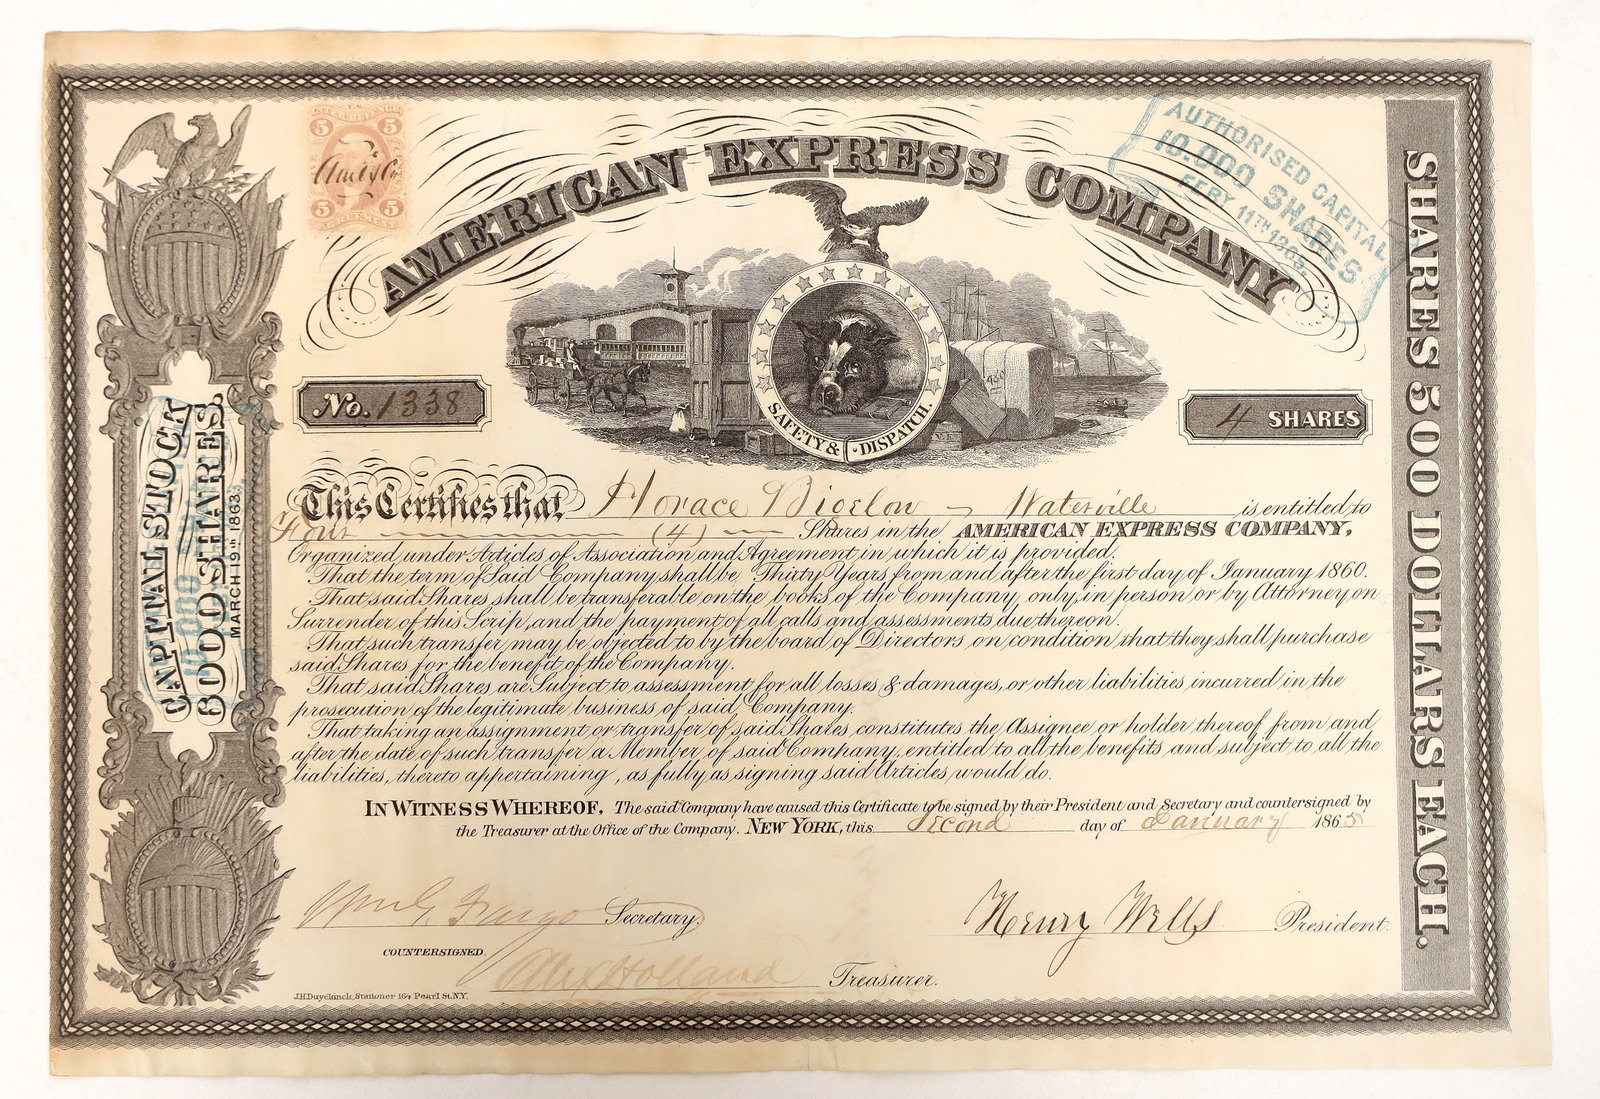 5 5
Am Ex Co
5 5
AMERICAN EXPRESS COMPANY
AUTHORISED CAPITAL
10.000 SHARES
FEBY 11TH 1865.
SHARES 500 DOLLARS EACH.
CAPITAL STOCK
6000 SHARES.
MARCH 19TH 1863.
10.000
No. 1338
SAFETY & DISPATCH.
4 SHARES
This Certifies that Horace Bigelow - Waterville is entitled to
Four (4) Shares in the AMERICAN EXPRESS COMPANY,
Organized under Articles of Association and Agreement in which it is provided.
That the term of Said Company shall be Thirty Years from and after the first day of January 1860.
That said Shares shall be transferable on the books of the Company, only, in person or by Attorney, on
Surrender of this Scrip, and the payment of all calls and assessments due thereon.
That such transfer may be objected to by the board of Directors on condition that they shall purchase
said Shares for the benefit of the Company.
That said Shares are Subject to assessment for all losses & damages, or other liabilities incurred in the
prosecution of the legitimate business of said Company.
That taking an assignment or transfer of said Shares constitutes the Assignee or holder thereof from and
after the date of such transfer a Member of said Company, entitled to all the benefits and subject to all the
liabilities, thereto appertaining, as fully as signing said Articles would do.
IN WITNESS WHEREOF, The said Company have caused this Certificate to be signed by their President and Secretary and countersigned by
the Treasurer at the Office of the Company. NEW YORK, this Second day of January 1865
Wm G. Fargo Secretary.
Henry Wells President.
COUNTERSIGNED.
Alex Holland Treasurer.
J.H. Duyckinck, Stationer 164 Pearl St. N.Y.